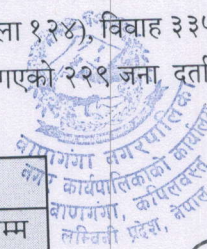 ला १२४), विवाह ३३५
गएको २२९ जना दर्ता
बाणगंगा नगरपालिका
नगर कार्यपालिकाको कार्यालय
बाणगंगा, कपिलवस्तु
लुम्बिनी प्रदेश, नेपाल
म्म